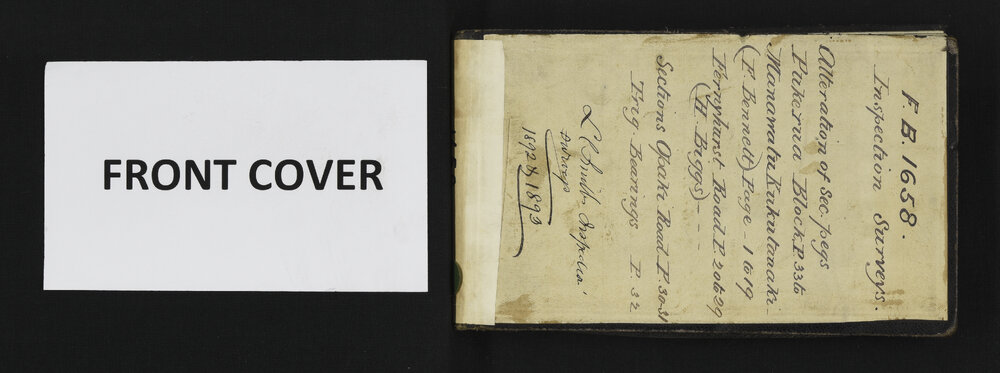 FRONT COVER
F. B. 1658.
Inspection Surveys.
Alteration of Sec. pegs
Pukerua Block P. 33 to
Manawatu Kukutauaki -
(F. Bennett) Page - 1 to 19
Fernyhurst Road P. 20 to 29
(H. Beggs) - - -
Sections Opaki Road P. 30-31
Trig. Bearings P. 32
L Smith Inspector
Surveys
1892 & 1893